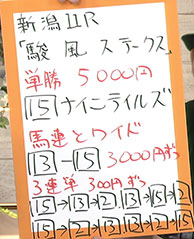 新潟11R
「駿風ステークス」
単勝 5000円
15 ナインテイルズ
馬連とワイド
13-15 3000円ずつ
3連単 300円ずつ
15→13→2 13→15→2
15→2→13 13→2→15